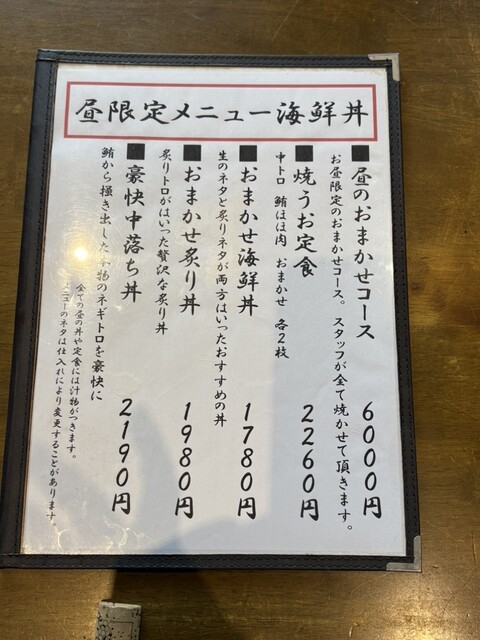 昼限定メニュー海鮮丼
■昼のおまかせコース 6000円
お昼限定のおまかせコース。スタッフが全て焼かせて頂きます。
■焼うお定食 2260円
中トロ 鮪ほほ肉 おまかせ 各2枚
■おまかせ海鮮丼 1780円
生のネタと炙りネタが両方はいったおすすめの丼
■おまかせ炙り丼 1980円
炙りトロがはいった贅沢な炙り丼
■豪快中落ち丼 2190円
鮪から掻き出した本物のネギトロを豪快に
全ての昼の丼や定食には汁物がつきます。
メニューのネタは仕入れにより変更することがあります